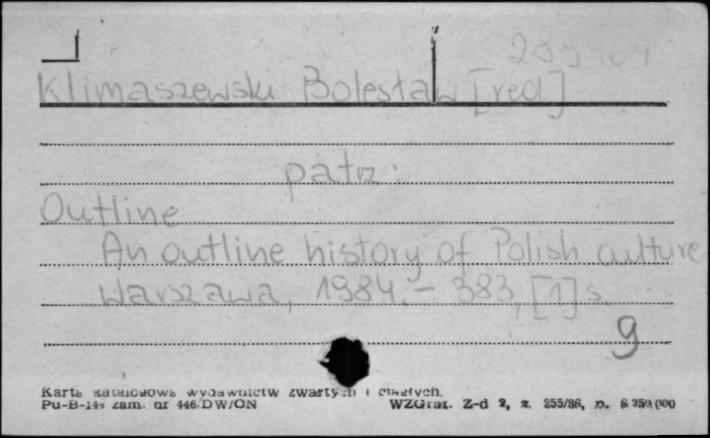 289404
Klimaszewski Bolesław [red.]
patrz:
Outline
An outline history of Polish culture
Warszawa, 1984. – 383, [1] s.
9
Karta katalogowa wydawnictw zwartych i ciągłych.
Pu-B-144 zam. nr 446/DW/ON WZGraf. Z-d 2, z. 255/86, n.